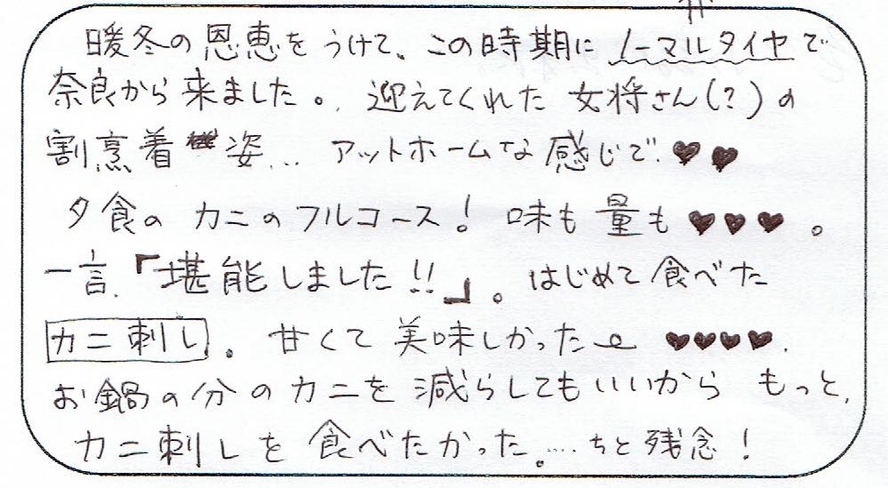 暖冬の恩恵をうけて、この時期にノーマルタイヤで
奈良から来ました。迎えてくれた女将さん(?)の
割烹着姿… アットホームな感じで♥♥
夕食のカニのフルコース! 味も量も♥♥♥。
一言、『堪能しました!!』。はじめて食べた
カニ刺し。甘くて美味しかったー ♥♥♥♥.
お鍋の分のカニを減らしてもいいから もっと、
カニ刺しを食べたかった。…ちと残念!